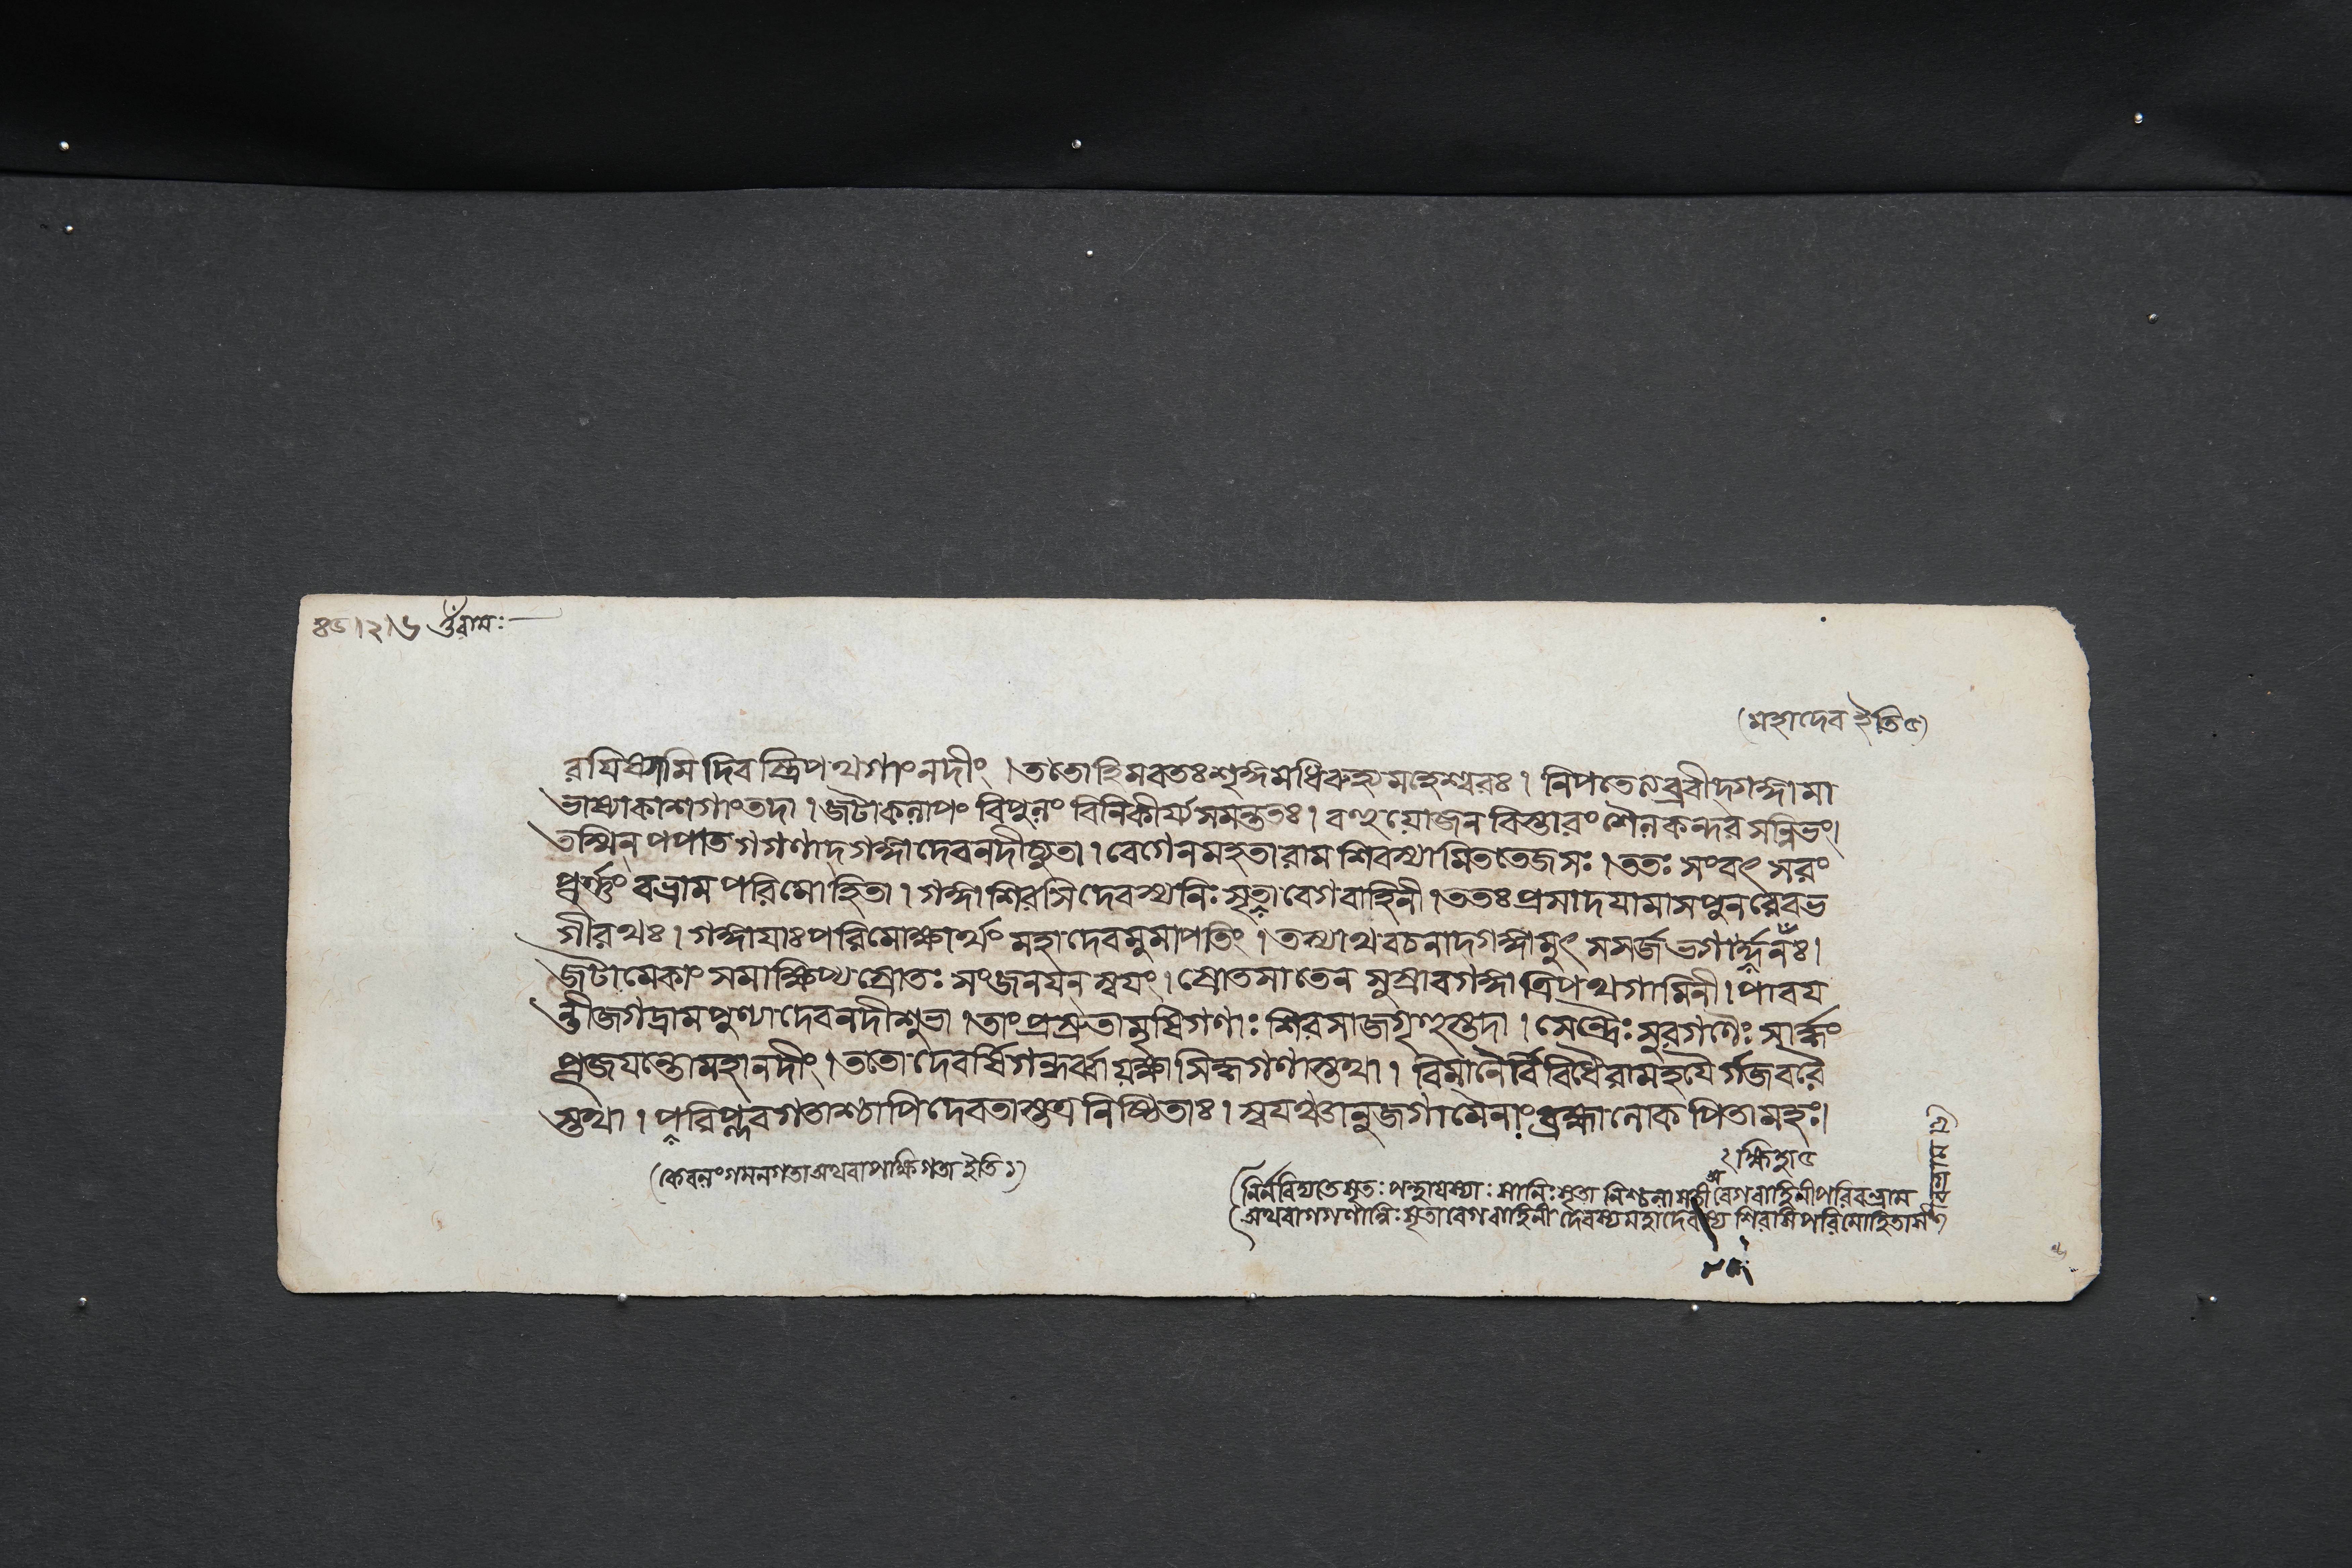 ৪৬।২।৬ ওঁরামঃ
(মহাদেব ইতি ৫)
রযিষ্যামি দিবস্ত্রিপথগাংনদীং । ততোহিমবতঃশৃঙ্গমধিরুহ্যমহেশ্বরঃ । নিপতেত্যব্রবীদ্গঙ্গামা
ভাষ্যাকাশগাংতদা । জটাকলাপং বিপুলং বিনিকীর্য্যসমন্ততঃ । বহুযোজনবিস্তারং শৈলকন্দরসন্নিভং।
তস্মিন্ পপাত গগণাদ্গঙ্গাদেবনদীচ্যুতা । বেগেনমহতারাম শিবস্যামিততেজসঃ । ততঃ সংবৎসরং
পূর্ণং বভ্রাম পরিমোহিতা । গঙ্গাশিরসিদেবস্যনিঃসৃতাবেগবাহিনী । ততঃপ্রসাদযামাসপুনরেবভ
গীরথঃ । গঙ্গাযাঃপরিমোক্ষার্থং মহাদেবমুমাপতিং । তস্যাথবচনাদ্গঙ্গামুৎসসর্জ্জভগার্দ্দনঃ।
জটামেকাং সমাক্ষিপ্যস্রোতঃ সংজনযন্ স্বযং । স্রোতসাতেন সুস্রাবগঙ্গাত্রিপথগামিনী । পাবয
ন্তীজগদ্রামপুণ্যাদেবনদীশুভা । তাংপ্রস্রুতামৃষিগণাঃ শিরসাজগৃহুস্তদা । সেন্দ্রৈঃ সুরগণৈঃ সার্দ্ধং
পূজযন্তোমহানদীং । ততোদেবর্ষিগন্ধর্ব্বাযক্ষাসিদ্ধগণাস্তথা । বিমানৈর্বিবিধৈরামহযৈর্গজবরৈ
স্তথা । পরিপ্লবগতাশ্চাপিদেবতাস্তত্রনিষ্ঠিতাঃ । স্বযঞ্চানুজগামৈনাং ব্রহ্মালোকপিতামহঃ।
(কেবলংগমনগতাঅথবাপাক্ষিগতা ইতি ১)
(অথবাগগণান্নিঃসৃতাবেগবাহিনী দেবস্যমহাদেবস্য শিরসিপরিমোহিতা